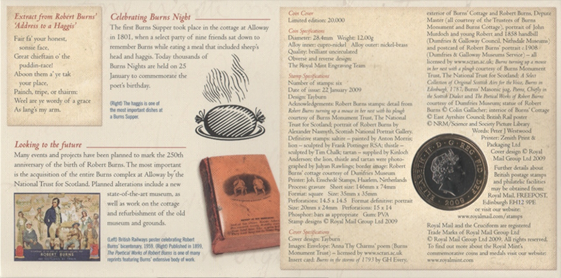 Extract from Robert Burns'
'Address to a Haggis'
Fair fa' your honest,
sonsie face,
Great chieftain o' the
puddin-race!
Aboon them a' ye tak
your place,
Painch, tripe, or thairm:
Weel are ye wordy of a grace
As lang's my arm.
Celebrating Burns Night
The first Burns Supper took place in the cottage at Alloway
in 1801, when a select party of nine friends sat down to
remember Burns while eating a meal that included sheep's
head and haggis. Today thousands of
Burns Nights are held on 25
January to commemorate the
poet's birthday.
(Right) The haggis is one of
the most important dishes at
a Burns Supper.
Looking to the future
Many events and projects have been planned to mark the 250th
anniversary of the birth of Robert Burns. The most important
is the acquisition of the entire Burns complex at Alloway by the
National Trust for Scotland. Planned alterations include a new
state-of-the-art museum, as
well as work on the cottage
and refurbishment of the old
museum and grounds.
ROBERT BURNS
(Left) British Railways poster celebrating Robert
Burns' bicentenary, 1959. (Right) Published in 1899,
The Poetical Works of Robert Burns is one of many
reprints featuring Burns' extensive body of work.
Coin Cover
Limited edition: 20,000
Coin Specification
Diameter: 28.4mm Weight: 12.00g
Alloy outer: cupro-nickel Alloy outer: nickel-brass
Quality: brilliant uncirculated
Obverse and reverse design:
The Royal Mint Engraving Team
Stamp Specifications
Number of stamps: six
Date of issue: 22 January 2009
Design: Tayburn
Acknowledgements: Robert Burns stamps: detail from
Robert Burns turning up a mouse in her nest with the plough
courtesy of Burns Monument Trust, The National
Trust for Scotland; portrait of Robert Burns by
Alexander Nasmyth, Scottish National Portrait Gallery.
Definitive stamps: saltire – painted by Anton Morris;
lion – sculpted by Frank Pottinger RSA; thistle –
sculpted by Tim Chalk; tartan – supplied by Kinloch
Anderson; the lion, thistle and tartan were photo-
graphed by Julyan Rawlings; border image: Robert
Burns' cottage courtesy of Dumfries Museum
Printer: Joh. Enschedé Stamps, Haarlem, Netherlands
Process: gravure Sheet size: 146mm x 74mm
Format: square Size: 35mm x 35mm
Perforations: 14.5 x 14.5 Format: definitive portrait
Size: 20mm x 24mm Perforations: 15 x 14
Phosphor: bars as appropriate Gum: PVA
Stamp designs © Royal Mail Group Ltd 2009
Cover Specifications
Cover design: Tayburn
exterior of Burns' Cottage and Robert Burns, Depute
Master (all courtesy of the Trustees of Burns
Monument and Burns Cottage); portrait of John
Murdoch and young Robert and 1858 handbill
(Dumfries & Galloway Council, Nithsdale Museums);
and postcard of Robert Burns' portrait c.1908
(Dumfries & Galloway Museums Service) – all
courtesy of Burns Monument
Trust, The National Trust for Scotland;
courtesy of Dumfries Museum; statue of Robert
Burns © Colin Gallacher; interior of Burns' Cottage
© East Ayrshire Council; British Rail poster
© NRM/Science and Society Picture Library
Words: Peter J Westwood
Printer: Zenith Print &
Packaging Ltd
Cover design © Royal
Mail Group Ltd 2009
Further details about
British postage stamps
and philatelic facilities
may be obtained from:
Royal Mail, FREEPOST,
Edinburgh EH12 9PE
or visit our website:
www.royalmail.com/stamps
Royal Mail and the Cruciform are registered
Trade Marks of Royal Mail Group Ltd
© Royal Mail Group Ltd 2009. All rights reserved.
To find out more about the Royal Mint's
commemorative coins and medals visit our website: